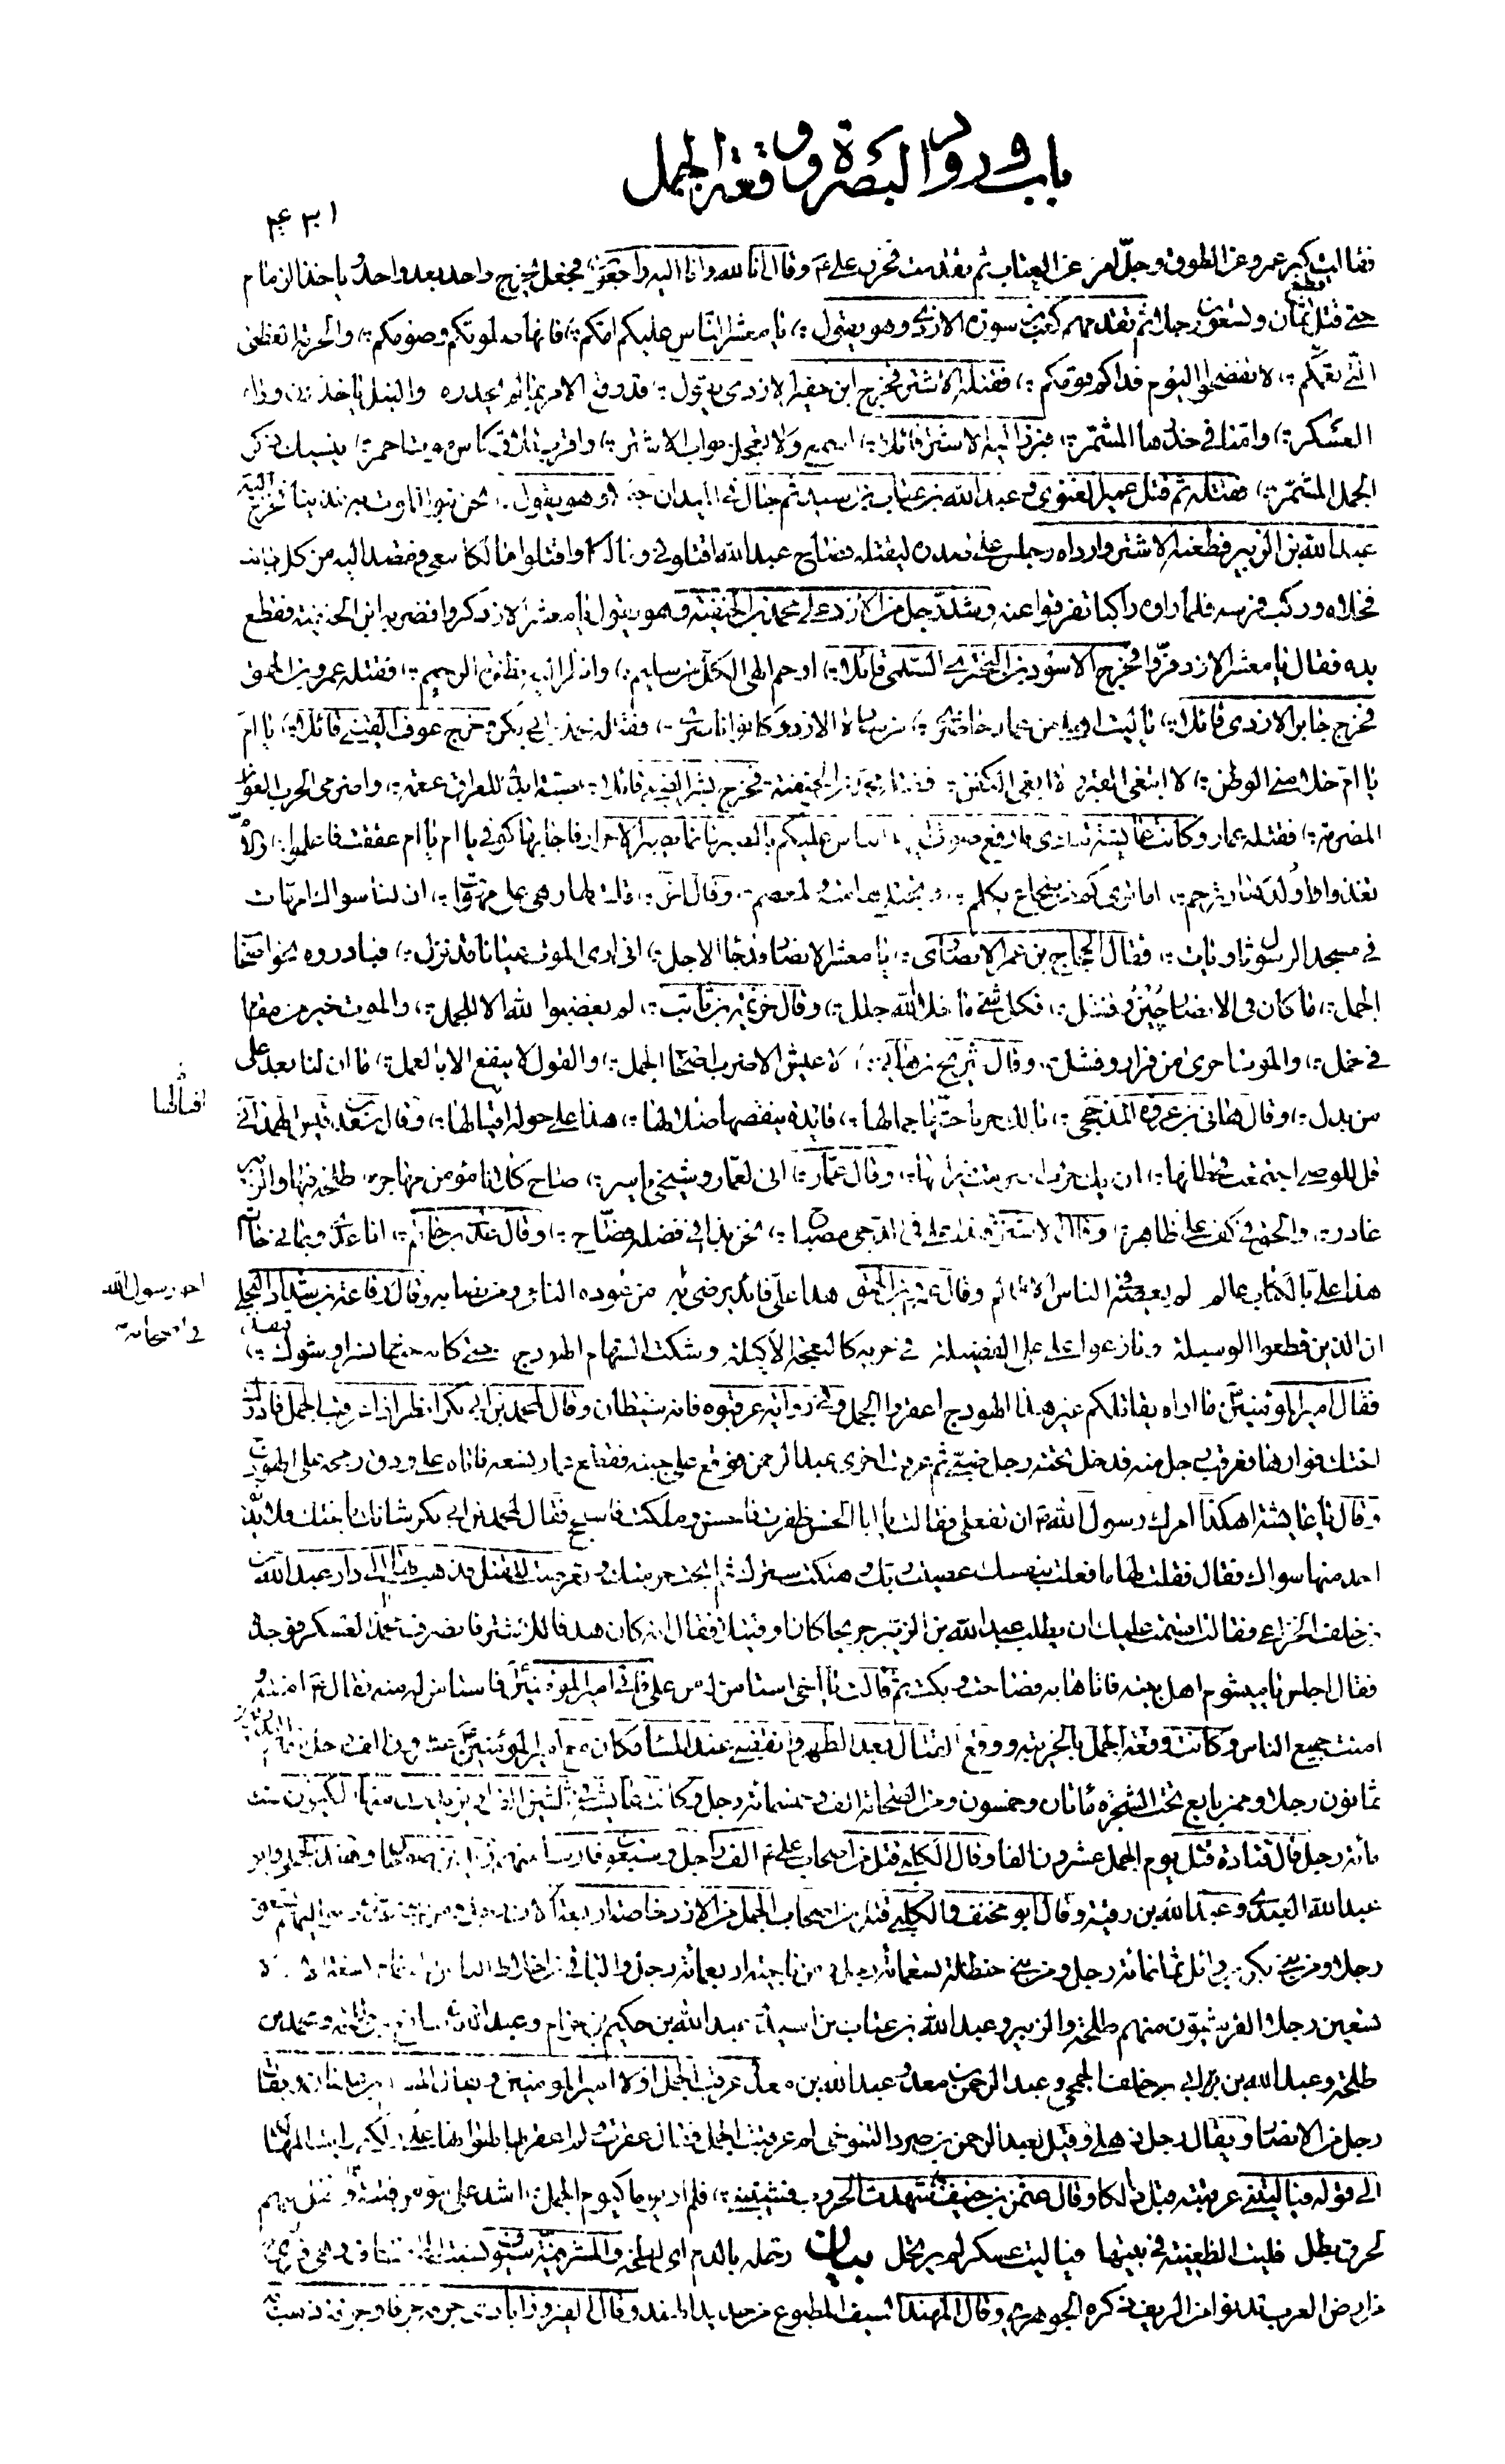 باب ورود البصرة ووقعة الجمل
٤٣١
فقالت كبر عمرو عن الطوق وجلّ امر عن العتاب ثم تقدمت فحزن علي ع وقال انا لله وانا اليه راجعون فجعل يخرج واحد بعد واحد ياخذ الزمام
حتى قتل ثمان وتسعون رجلا ثم تقدمهم كعب بن سورة الازدي وهو يقول يا معشر الناس عليكم امكم فانها صلوتكم وصومكم والحرمة العظمى
التي تعمكم لا تفضحوا اليوم فداكم قومكم فقتله الاشتر فخرج ابن جفير الازدي يقول قد وقع الامر بما لم يحذر والنبل ياخذن وراء
العسكر وامنا في خدرها المشمر فبرز اليه الاشتر قائلا اسمع ولا تعجل جواب الاشتر واقرب تلاق كاس موت احمر ينسيك ذكر
الجمل المشمر فقتله ثم قتل عمير الغنوي وعبد الله بن عتاب بن اسيد ثم جال في الميدان جولا وهو يقول نحن بنو الموت به غذينا فخرج اليه
عبد الله بن الزبير فطعنه الاشتر وارداه وجلس على صدره ليقتله فصاح عبد الله اقتلوني ومالكا واقتلوا مالكا معي فقصد اليه من كل جانب
فخلاه وركب فرسه فلما راوه راكبا تفرقوا عنه وشد رجل من الازد على محمد بن الحنفية وهو يقول يا معشر الازد كروا فضربه ابن الحنفية فقطع
يده فقال يا معشر الازد فرّوا فخرج الاسود بن البختري السلمي قائلا ارحم الهي الكل من سليم وانظر اليه نظرة الرحيم فقتله عمرو بن الحمق
فخرج جابر الازدي قائلا يا ليت اهلي من عمار حاضري من سادة الازد وكانوا ناصري فقتله محمد بن ابي بكر وخرج عوف القيني قائلا يا امّ
يا امّ خلا مني الوطن لا ابتغي القبر ولا ابغي الكفن فقتله محمد بن الحنفية فخرج بشر الضبي قائلا ضبة ابدي للعراق عمعمة واضرمي الحرب العوان
المضرمة فقتله عمار وكانت عائشة تنادي بارفع صوت ايها الناس عليكم بالصبر فانما يصبر الاحرار فاجابها كوفي يا ام يا ام عققت فاعلموا والام
تغذو ولدها وترحم اما ترى كم من شجاع يكلم وتختلى هامته والمعصم وقال اخر قلت لها وهي على مهوات ان لنا سواك امهات
في مسجد الرسول ثاويات فقال الحجاج بن عمر الانصاري يا معشر الانصار قد جاء الاجل اني ارى الموت عيانا قد نزل فبادروه نحو اصحاب
الجمل ما كان في الانصار جبن وفشل فكل شيء ما خلا الله جلل وقال خزيمة بن ثابت لم يغضبوا لله الا للجمل والموت خير من مقام
في خمل والموت احرى من فرار وفشل وقال شريح بن هاني لا عيش الا ضرب اصحاب الجمل والقول لا ينفع الا بالعمل ما ان لنا بعد علي
من بدل وقال هاني بن عروة المذحجي يا لك حربا حثها جمالها قائدة ينقصها ضلالها هذا علي حوله اقيالها وقال سعد بن قيس الهمداني
اقتالها
قل للوصي اجتمعت قحطانها ان يك حرب اضرمت نيرانها وقال عمّار اني لعمار وشيخي ياسر صاح كلانا مؤمن مهاجر طلحة فيها والزبير
غادر والحق في كف علي ظاهر وقال الاشتر هذا علي في الدجى مصباح نحن بذا في فضله فصّاح وقال عدي بن حاتم انا عدي ونماني حاتم
هذا علي بالكتاب عالم لم يعصه في الناس الا ظالم وقال عمرو بن الحمق هذا علي قائد يرضى به من عوده النامي ومن نصابه وقال رفاعة بن شداد البجلي
اخو رسول الله
في اصحابه
ان الذين قطعوا الوسيلة ونازعوا على علي الفضيلة في حربه كالنعجة الاكيلة وشكت السهام الهودج حتى كانه جناح نسر او شوك
فقال امير المؤمنين ع ما اراه يقاتلكم غير هذا الهودج اعقروا الجمل وفي رواية عرقبوه فانه شيطان وقال لمحمد بن ابي بكر انظر اذا عرقب الجمل فادرك
اختك فوارها فعرقب رجل منه فدخل تحته رجل ضبي ثم عرقب اخرى عبد الرحمن فوقع على جنبه فقطع عمار نسعه فاتاه علي ودق رمحه على الهودج
وقال يا عائشة اهكذا امرك رسول الله ص ان تفعلي فقالت يا ابا الحسن ظفرت فاحسن وملكت فاسجح فقال لمحمد بن ابي بكر شانك باختك فلا يدنو
احد منها سواك فقال فقلت لها ما فعلت بنفسك عصيت ربك وهتكت سترك ثم ابحت حرمتك وتعرضت للقتل فذهب بها الى دار عبد الله
بن خلف الخزاعي فقالت اقسمت عليك ان تطلب عبد الله بن الزبير جريحا كان او قتيلا فقال انه كان هدفا للاشتر فانصرف محمد الى العسكر فوجده
فقال اجلس يا ميشوم اهل بيته فاتاها به فصاحت وبكت ثم قالت يا اخي استامن له من علي فاتى امير المؤمنين ع فاستامن له منه فقال ع امنته و
امنت جميع الناس وكانت وقعة الجمل بالخريبة ووقع القتال بعد الظهر وانقضى عند المساء فكان مع امير المؤمنين ع عشرون الف رجل منهم البدريون
ثمانون رجلا وممن بايع تحت الشجرة مائتان وخمسون ومن الصحابة الف وخمسمائة رجل وكانت عائشة في ثلثين الف او يزيدون منها المكيون ست
مائة رجل قال قتادة قتل يوم الجمل عشرون الفا وقال الكلبي قتل من اصحاب علي ع الف راجل وسبعون فارسا منهم زيد بن صوحان وهند الجملي وابو
عبد الله العبدي وعبد الله بن رقية وقال ابو مخنف والكلبي قتل من اصحاب الجمل من الازد خاصة اربعة الاف رجل ومن بني عدي ومواليهم تسعون
رجلا ومن بني بكر بن وائل ثمانمائة رجل ومن بني حنظلة تسعمائة رجل ومن ناجية اربعمائة رجل والباقي من اخلاط الناس الى تمام تسعة الاف الا
تسعين رجلا القرشيون منهم طلحة والزبير وعبد الله بن عتاب بن اسيد وعبد الله بن حكيم بن حزام وعبد الله بن شافع بن طلحة ومحمد بن
طلحة وعبد الله بن ابي بن خلف الجمحي وعبد الرحمن بن معد وعبد الله بن معد وعرقب الجمل اولا امير المؤمنين ويقال المسلم بن عدنان ويقال
رجل من الانصار ويقال رجل ذهلي وقيل لعبد الرحمن بن صرد التنوخي لم عرقبت الجمل فقال عقرت ولم اعقر بها لهوانها علي ولكني رايت المهالكا
الى قوله فيا ليتني عرقبته قبل ذلكا وقال عثمن بن حنيف شهدت الحروب فشيبنني فلم ار يوما كيوم الجمل اشد على مؤمن فتنة واقتل منهم
لخرق بطل فليت الظعينة في بيتها ويا ليت عسكر لم يرتحل بيان رمله بالدم اي لطخه والمشرفية سيوف نسبت الى مشارف وهي قرى
من ارض العرب تدنو من الريف ذكره الجوهري وقال المهند السيف المطبوع من حديد الهند وقال الفيروزآبادي جرفه جرفا وجرفة ذهب به